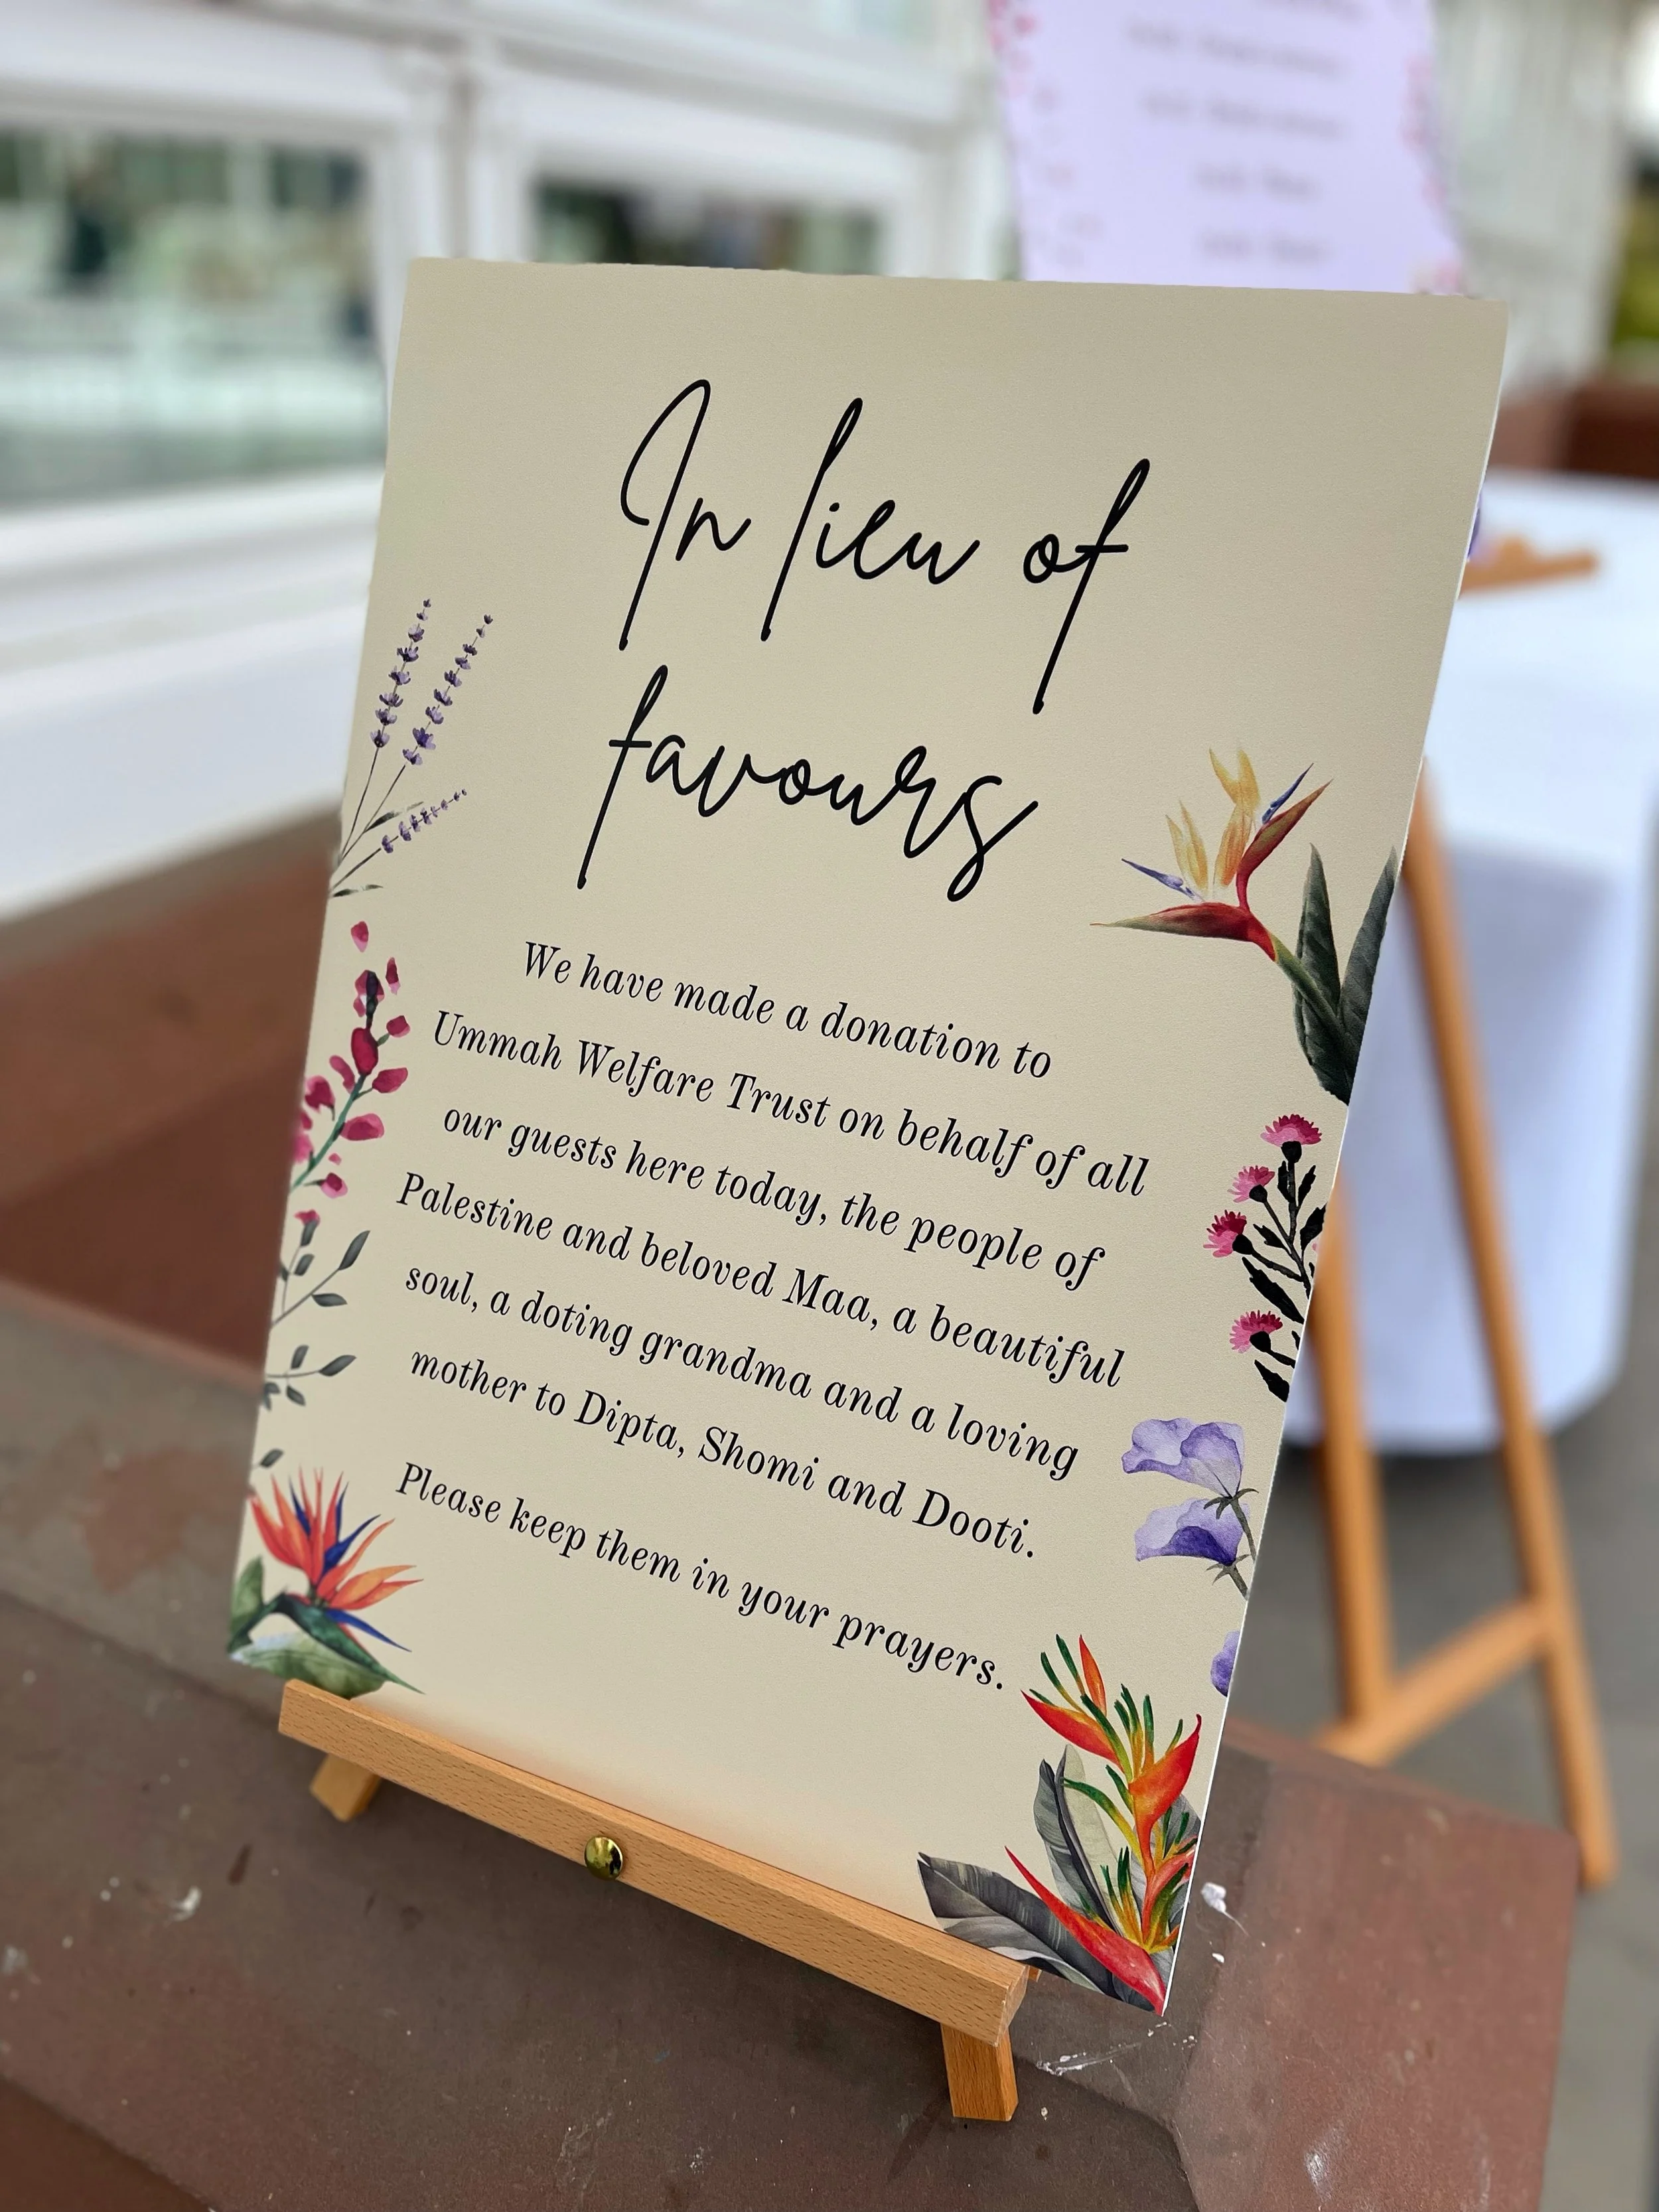 In lieu of
favours
We have made a donation to
Ummah Welfare Trust on behalf of all
our guests here today, the people of
Palestine and beloved Maa, a beautiful
soul, a doting grandma and a loving
mother to Dipta, Shomi and Dooti.
Please keep them in your prayers.